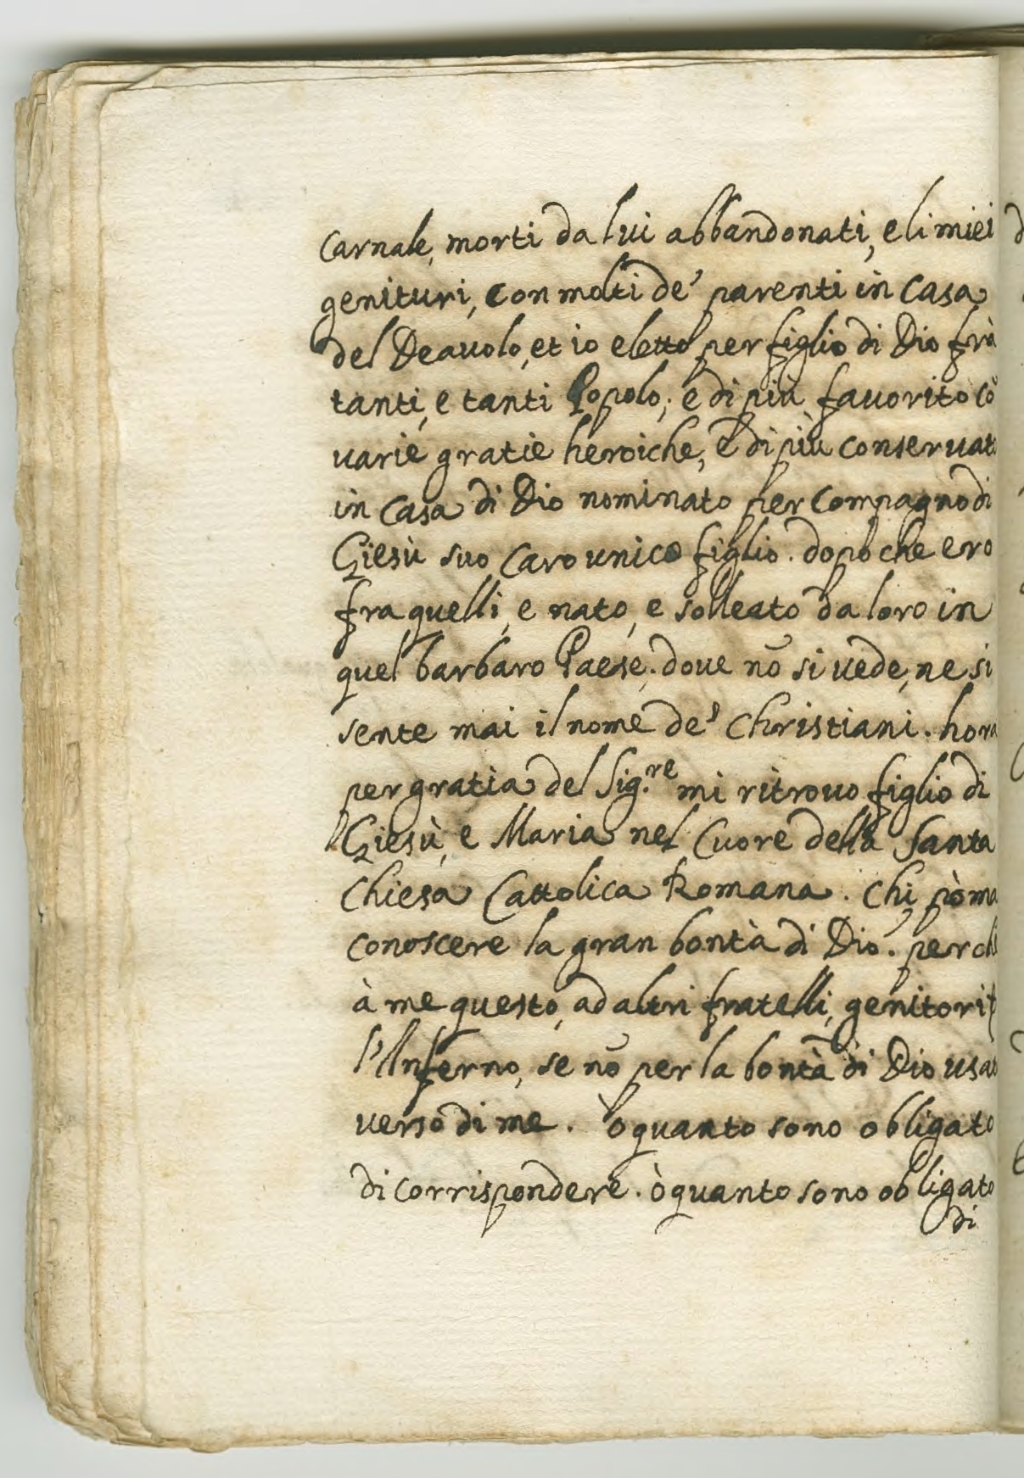 carnale, morti da lui abbandonati, e li miei
genituri, con molti de' parenti in casa
del Deavolo, et io eletto per figlio di Dio frà
tanti, e tanti Popolo, e di più favorito cō
uarie gratie heroiche, e di più conseruato
in casa di Dio nominato per compagno di
Giesù suo caro unico figlio. dopo che ero
fra quelli, e nato, e solleato da loro in
quel barbaro Paese. doue nō si uede, ne si
sente mai il nome de' Christiani. hora
per gratia del Sig.re mi ritrouo figlio di
Giesù, e Maria nel Cuore della Santa
Chiesa Cattolica Romana. Chi pò mà
conoscere la gran bontà di Dio. perche
à me questo, ad altri fratelli, genitori
l'Inferno, se nō per la bontà di Dio usat
uerso di me. ò quanto sono obligato
di corrispondere. ò quanto sono obligato
di